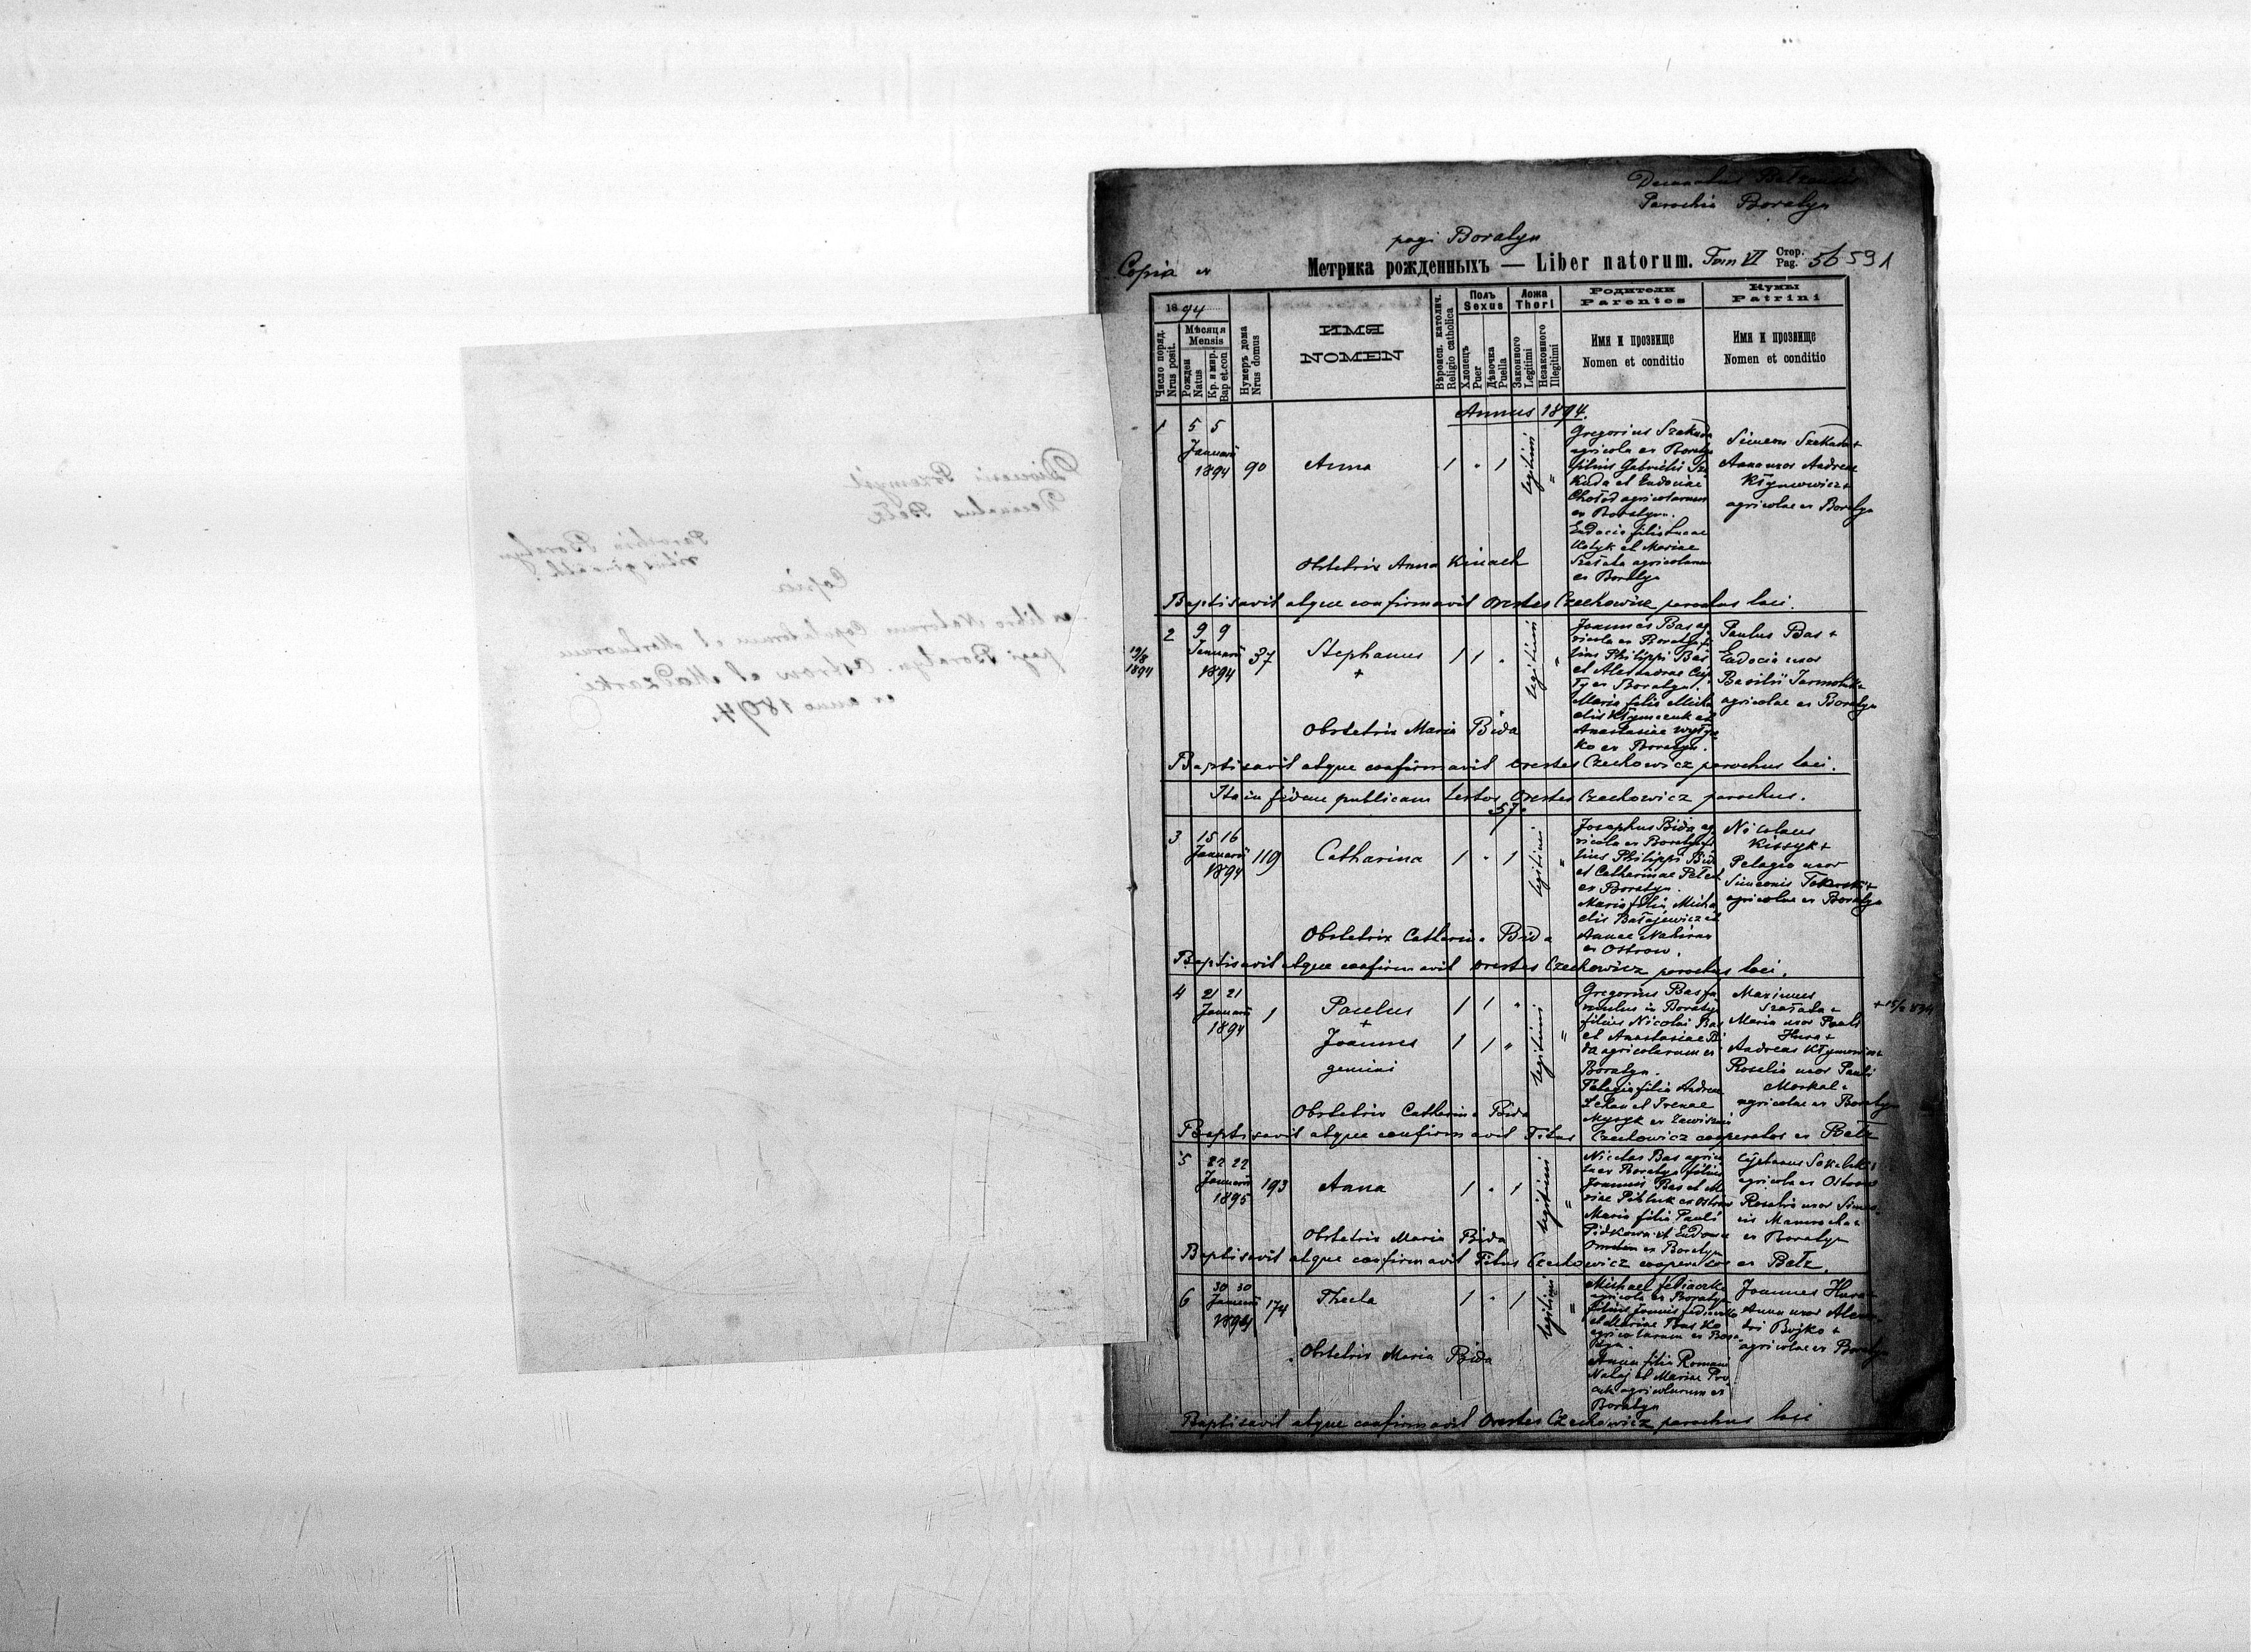 Decanatus Bełzensis
Parochia Boratyn
pagi Boratyn
Copia ex Метрика рожденныхъ — Liber natorum. Tom VI Стор. Pag. 56 591
1894
Число поряд. Nrus posit.
Мѣсяця Mensis
Рожден Natus
Кр. и мир. Bap et.con
Нумеръ дома Nrus domus
ИМЯ
NOMEN
Вѣроисп. католич. Religio catholica
Полъ Sexus
Хлопець Puer
Дѣвочка Puella
Ложа Thori
Законного Legitimi
Незаконного Illegitimi
Родители Parentes
Имя и прозвище
Nomen et conditio
Кумы Patrini
Имя и прозвище
Nomen et conditio
Annus 1894.
1 5 5 Januarii 1894 90 Anna 1 " 1 legitimi "
Gregorius Szekuda
agricola ex Boratyn
filius Gabrielis Sze
kuda et Eudociae
Chołod agricolarum
ex Boratyn.
Eudocia filia Lucae
Kotyk et Mariae
Szałata agricolarum
ex Boratyn
Simeon Szekuda +
Anna uxor Andreae
Kłymowicz +
agricolae ex Boratyn
Obstetrix Anna Kinach
Baptisavit atque confirmavit Orestes Czechowicz parochus loci.
19/8 1894
2 9 9 Januarii 1894 37 Stephanus + 1 1 " legitimi "
Joannes Bas ag
ricola ex Boratyn fi
lius Philippi Bas
et Alexandrae
ex Boratyn.
Maria filia Micha
elis Kłymczuk et
Anastasiae
ko ex Boratyn.
Paulus Bas +
Eudocia uxor
Basilii
agricolae ex Boratyn
Obstetrix Maria Bida
Baptisavit atque confirmavit Orestes Czechowicz parochus loci.
Ita in fidem publicam testor Orestes Czechowicz parochus.
57.
3 15 16 Januarii 1894 119 Catharina 1 " 1 legitimi "
Josephus Bida ag
ricola ex Boratyn fi
lius Philippi Bida
et Catharinae
ex Boratyn.
Maria filia Micha
elis Bałajewicz et
Annae
ex Ostrow.
Nicolaus
Kissyk +
Pelagia uxor
Simeonis
agricolae ex Boratyn
Obstetrix Catharina Bida
Baptisavit atque confirmavit Orestes Czechowicz parochus loci.
4 21 21 Januarii 1894 1 Paulus 1 1 "
+
Joannes 1 1 " legitimi "
gemini
Gregorius Bas fa
mulus in Boratyn
filius Nicolai Bas
et Anastasiae Bi
da agricolarum ex
Boratyn.
Pelagia filia Andreae
et Irenae
Maximus
Szałata +
Maria uxor Pauli
Hura +
Andreas Kłymowicz +
Rosalia uxor Pauli
Moskal +
agricolae ex Boratyn
Obstetrix Catharina Bida
Baptisavit atque confirmavit Titus Czechowicz cooperator ex Bełz
5 22 22 Januarii 1895 193 Anna 1 " 1 legitimi "
Nicolas Bas agrico
la ex Boratyn filius
Joannis Bas et Ma
riae ex Ostrow
Maria filia Pauli
ex Boratyn
agricola ex Ostrow
Rosalia uxor Simeo
nis
ex Boratyn
Obstetrix Maria Bida
Baptisavit atque confirmavit Titus Czechowicz cooperator ex Bełz.
6 30 30 Januarii 1894 174 Thecla 1 " 1 legitimi "
Michael
agricola ex Boratyn
filius Joannis
et Mariae
agricolarum ex Bora
tyn.
Anna filia Romani
et Mariae
agricolarum ex
Boratyn
Joannes Hura +
Anna uxor
Bojko +
agricolae ex Boratyn
Obstetrix Maria Bida
Baptisavit atque confirmavit Orestes Czechowicz parochus loci
Dioecesis Przemyśl
Decanatus Bełz
Parochia Boratyn
Copia
ex libro Natorum Copulatorum et Mortuorum
pagi Boratyn. Ostrow et Madzarki
ex anno 1894.